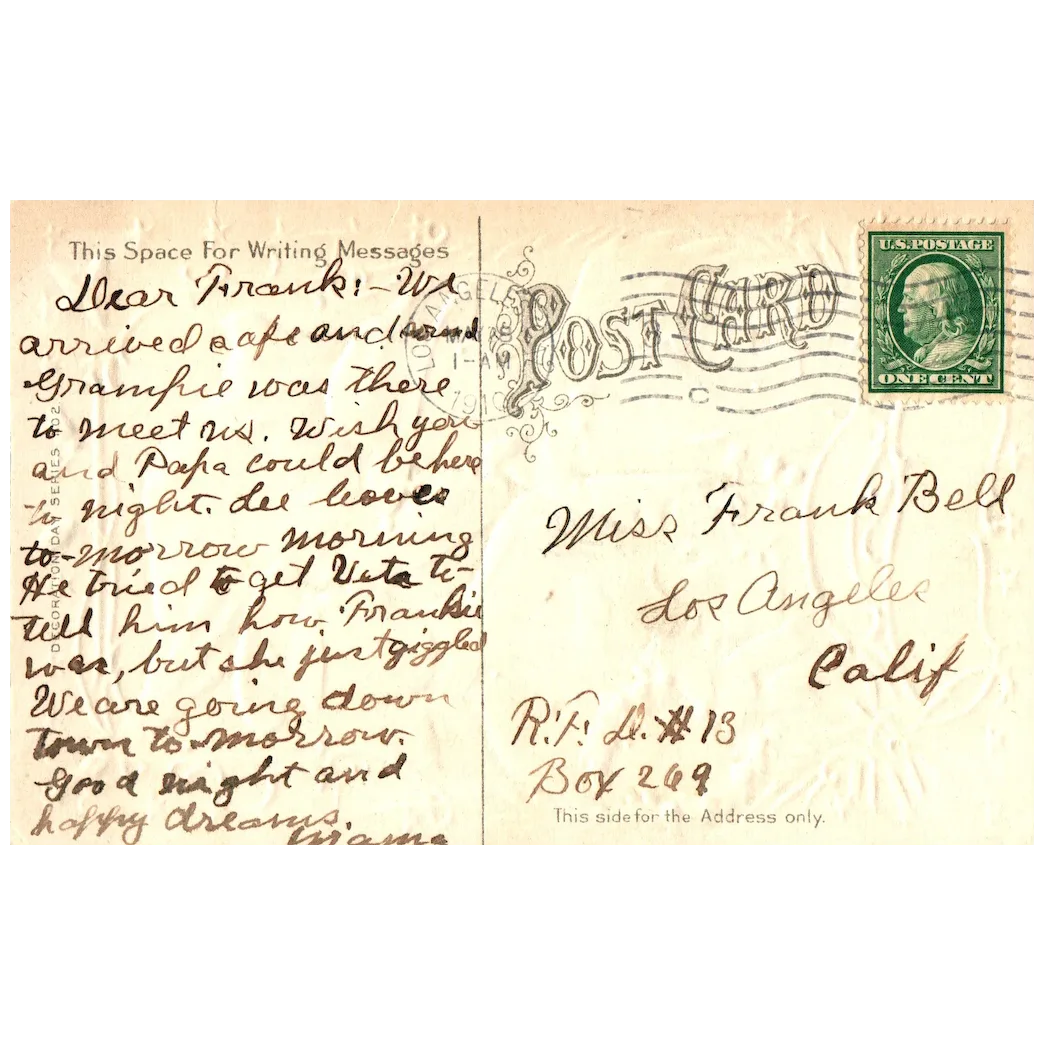 This Space For Writing Messages
Dear Frank:- We
arrived safe and sound
Grampie was there
to meet us. Wish you
and Papa could be here
to night. Lee leaves
to-morrow morning
He tried to get Veta to
tell him how Frankie
was, but she just giggled
We are going down
town to-morrow.
Good night and
happy dreams.
Mama
DECORATION DAY SERIES
LOS ANGELES
1-AM
1910
POST CARD
C
U.S. POSTAGE
ONE CENT
Miss Frank Bell
Los Angeles
Calif
R.F.D. #13
Box 269
This side for the Address only.